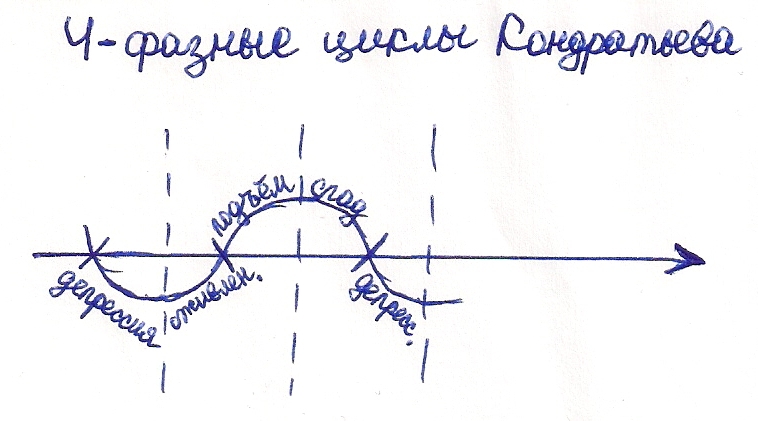 4-фазные циклы Кондратьева
подъём
спад
депрессия
оживлен.
депресс.